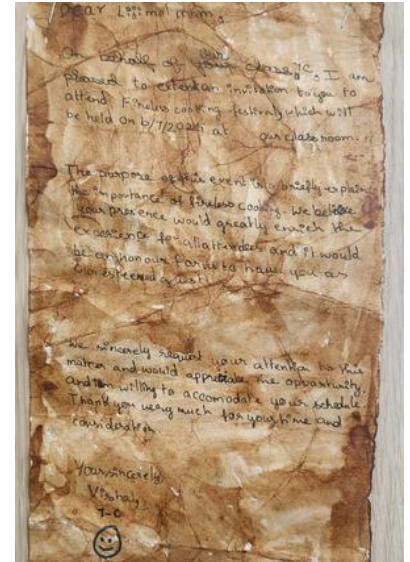 Dear Limal mam,
On behalf of our class 7C, I am
pleased to extend an invitation to you to
attend Fireless cooking festival, which will
be held on 6/7/2024 at our classroom.
The purpose of this event is briefly explain
the importance of fireless cooking. We believe
your presence would greatly enrich the
experience for all attendees and it would
be an honour for us to have you as
our esteemed guest!
We sincerely request your attention to this
matter and would appreciate the opportunity,
and am willing to accomodate your schedule.
Thank you very much for your time and
consideration
Yours sincerely
Vishal
7-C